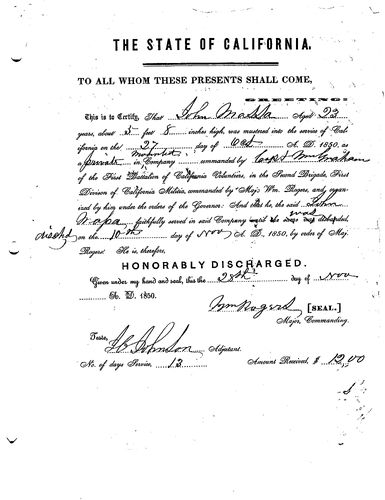 THE STATE OF CALIFORNIA.
TO ALL WHOM THESE PRESENTS SHALL COME,
GREETING:
This is to Certify, That John Aged 23
years, about 5 feet 8 inches high, was mustered into the service of Cal-
ifornia on the 27 day of Oct A. D. 1850, as
a private in Company commanded by Capt Wm Graham
of the First Battalion of California Volunteers, in the Second Brigade, First
Division of California Militia, commanded by Maj. Wm. Rogers, and organ-
ized by him under the orders of the Governor. And that he, the said John
faithfully served in said Company until he was
dischd on the 10th day of Nov A. D. 1850, by order of Maj.
Rogers: He is, therefore,
HONORABLY DISCHARGED.
Given under my hand and seal, this the 28th day of Nov
A. D. 1850.
Wm Rogers [SEAL.]
Major, Commanding.
Teste, Johnson Adjutant.
No. of days Service, 13 Amount Received, $ 12,00